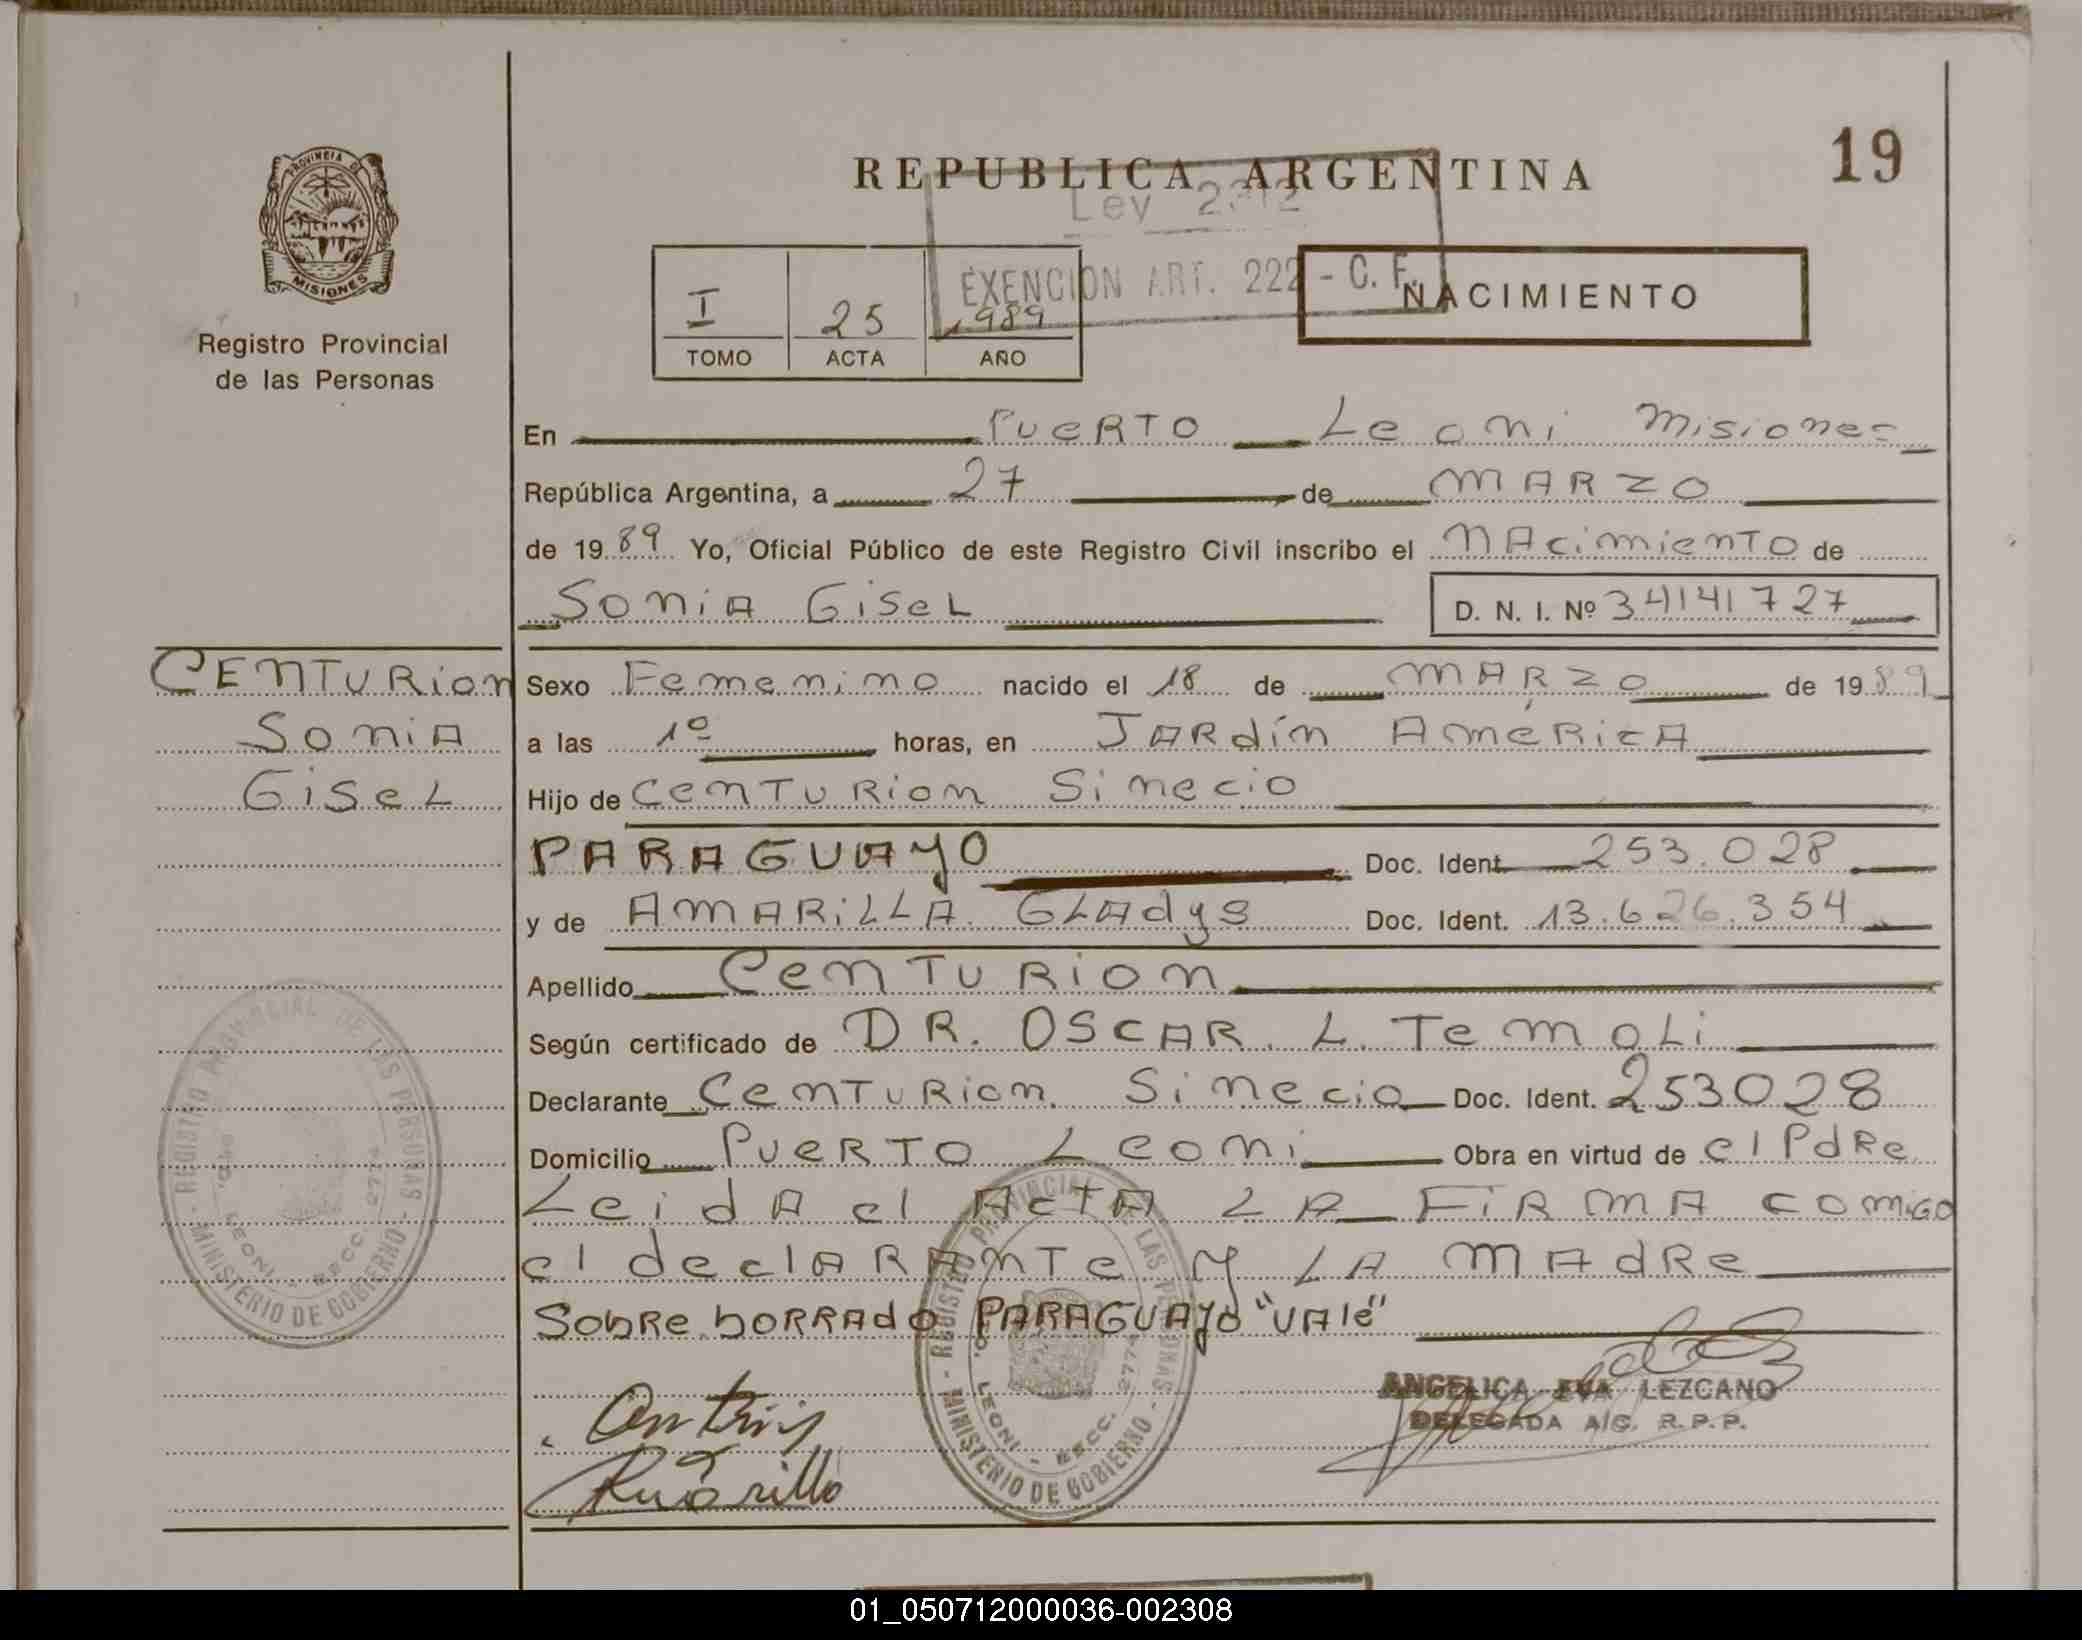 PROVINCIA DE
MISIONES
Registro Provincial
de las Personas
REPUBLICA ARGENTINA
19
Ley 2312
EXENCION ART. 222 - C. F.
I 25 1989
TOMO ACTA AÑO
NACIMIENTO
En PUERTO Leoni Misiones
República Argentina, a 27 de MARZO
de 1989 Yo, Oficial Público de este Registro Civil inscribo el NAcimienTO de
SoniA GiseL D. N. I. Nº 34141727
CENTURion
SoniA
GiseL
Sexo Femenino nacido el 18 de MARZO de 1989
a las 1º horas, en JARdín AméRicA
Hijo de CenTURion Sinecio
PARAGUAyO Doc. Ident. 253.028
y de AMARiLLA GLAdys Doc. Ident. 13.626.354
Apellido CenTURion
Según certificado de DR. OSCAR L. TemoLi
Declarante CenTURion Sinecio Doc. Ident. 253028
Domicilio PUERTO Leoni Obra en virtud de el PdRe
LeidA el ActA LA FiRmA comiGo
el declARAnTe y LA MAdRe
SobRe boRRAdo PARAGUAyo "VAle"
ANGELICA EVA LEZCANO
DELEGADA A/C. R.P.P.
REGISTRO PROVINCIAL DE LAS PERSONAS
MINISTERIO DE GOBIERNO
LEONI - SECC. 2774
REGISTRO PROVINCIAL DE LAS PERSONAS
MINISTERIO DE GOBIERNO
LEONI - SECC. 2774
01_050712000036-002308